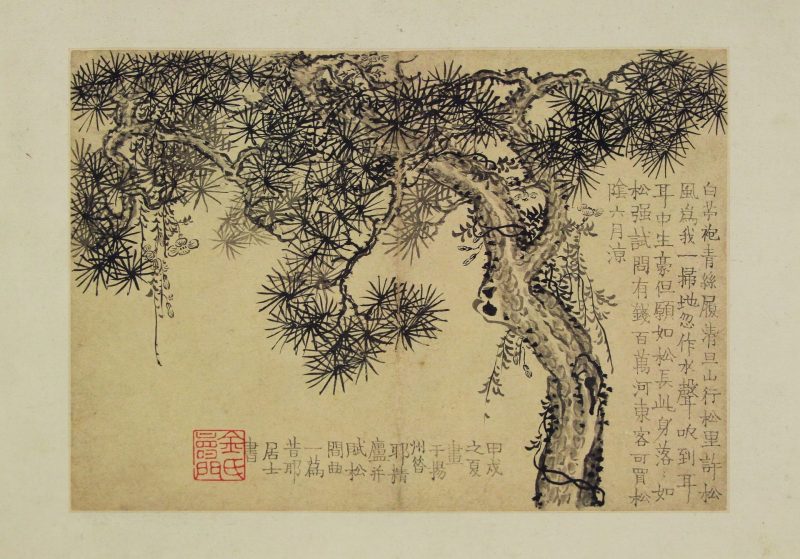 白苧袍青絲履清旦山行松里許松
風爲我一掃地忽作水聲吹到耳
耳中生豪但願如松長此身落〻如
松强試問有錢百萬河東客可買松
陰六月凉
甲戌
之夏
畫
于揚
州昔
耶精
廬并
賦松
間曲
一篇
昔耶
居士
書
金氏
壽門